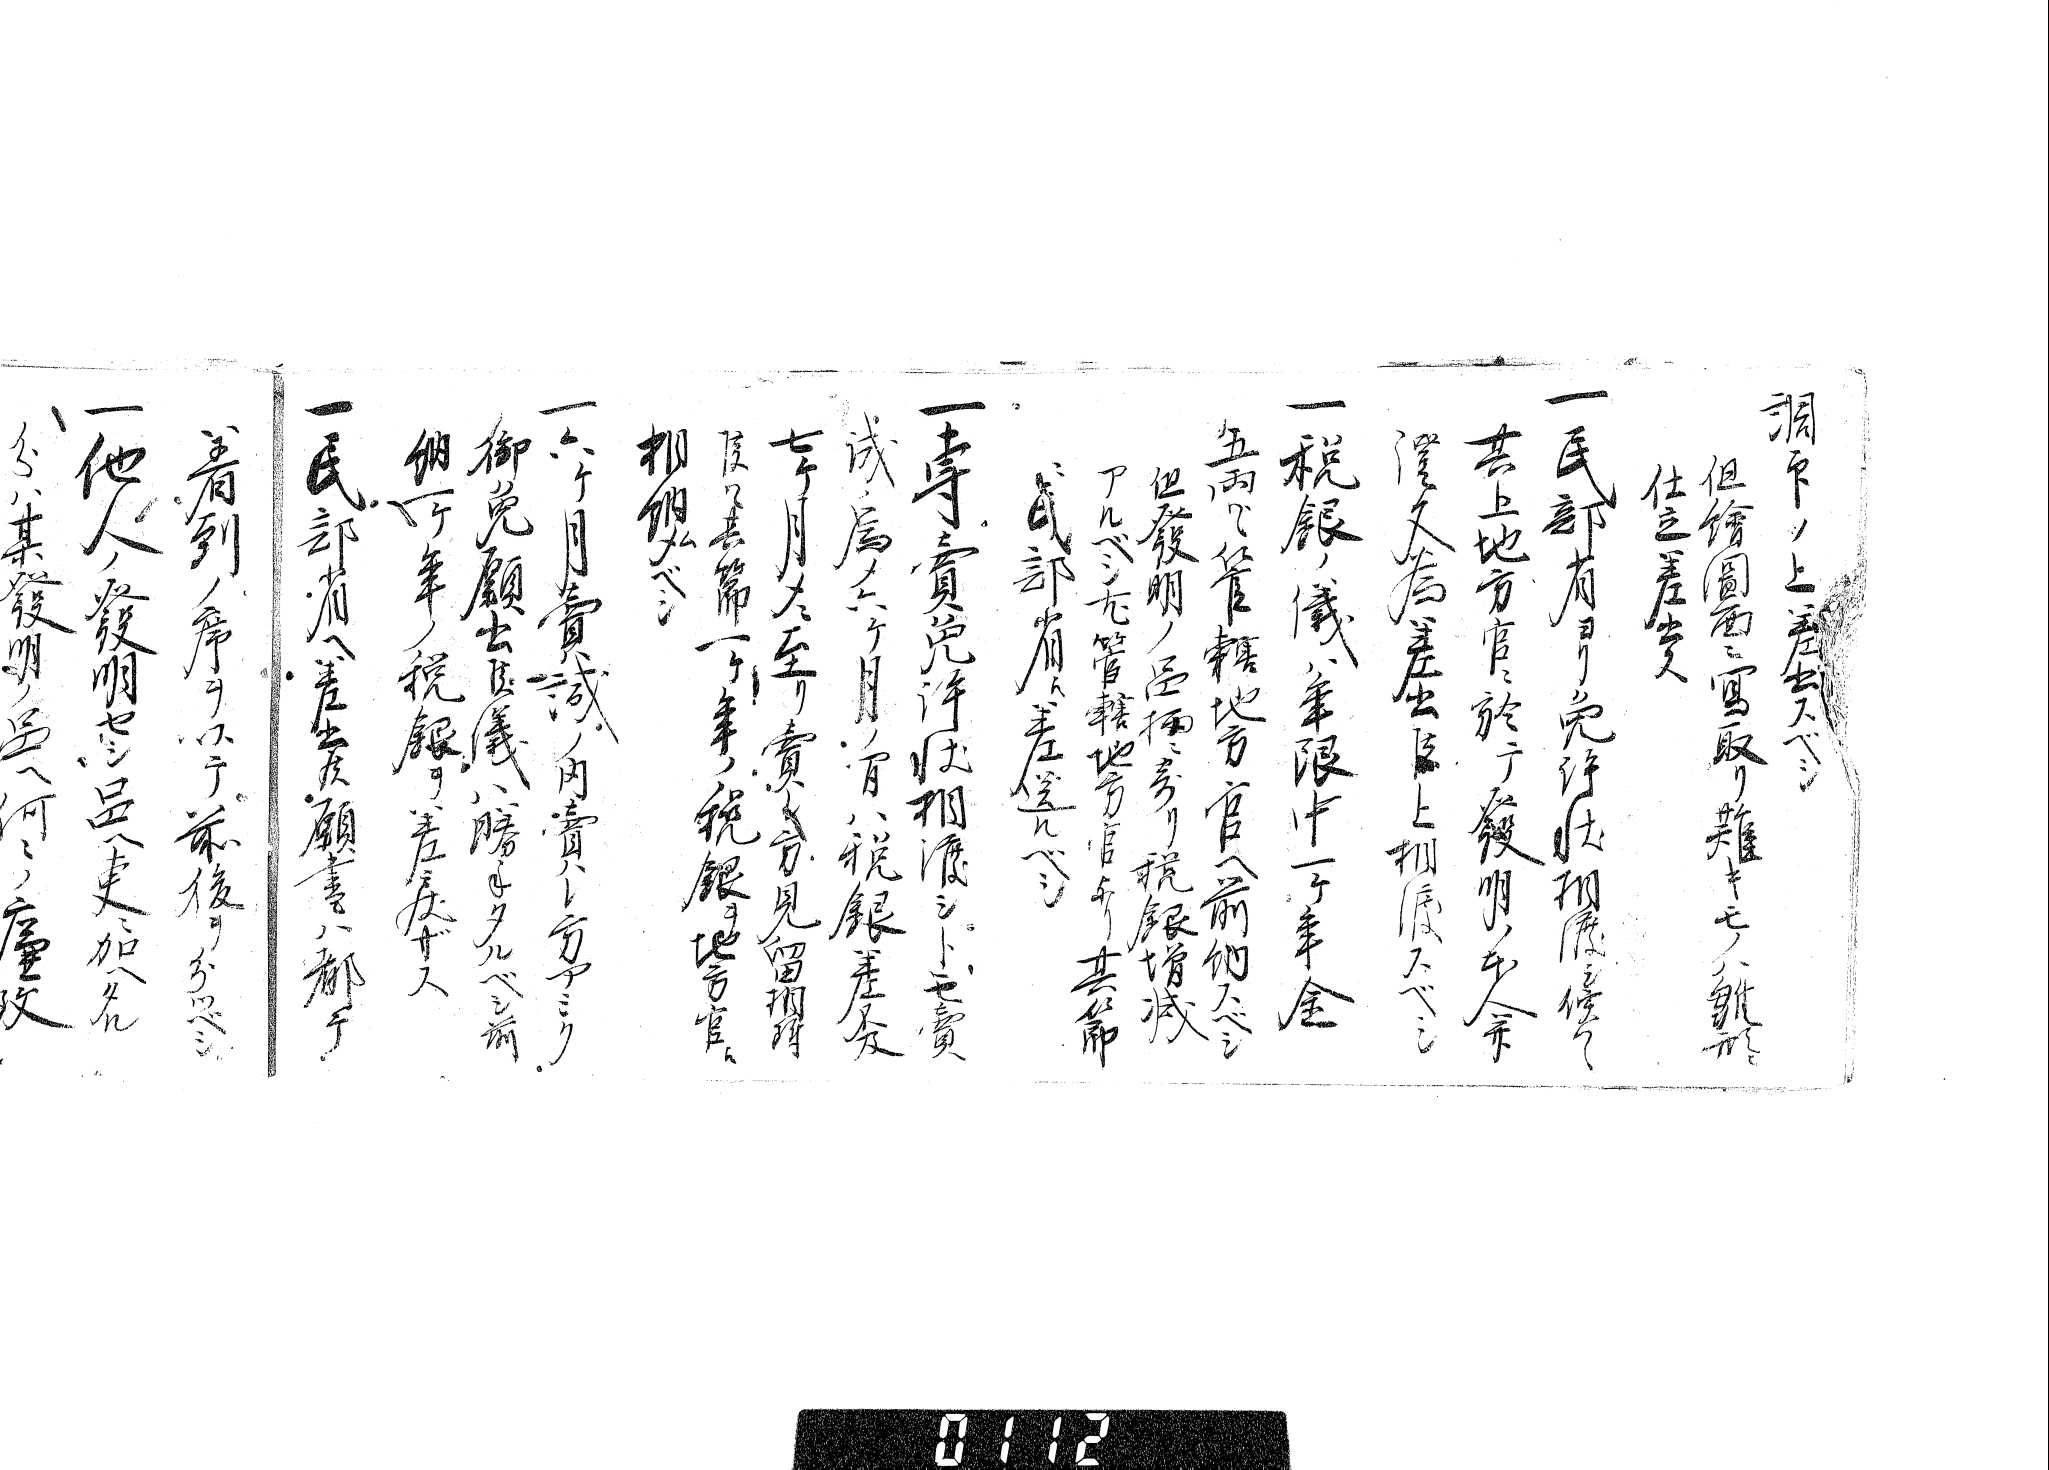 調印ノ上差出スベシ
但繪圖面ニ寫取リ難キモノハ雛形ニ
仕立差出ス
一民部省ヨリ免許状相渡シ候ハヽ
其上地方官ニ於テ發明ノ本人并
證文為差出候上相渡スベシ
一税銀ノ儀ハ年限中一ケ年金
五両ツヽ管轄地方官ヘ前納スベシ
但發明ノ品柄ニ寄リ税銀増減
アルベシ尤管轄地方官ヨリ其節
民部省ニ差送ルベシ
一専賣免許状相渡シトモ賣
試ノ為メ六ケ月ノ間ハ税銀差及
七ケ月メニ至リ賣レ方見留相附
候ハヽ其節一ケ年ノ税銀ヲ地方官ニ
相納ムベシ
一六ケ月賣試ノ内賣ハレ方アシク
御免願出候儀ハ勝手タルベシ前
納一ケ年ノ税銀ヲ差戻サズ
一民部省ヘ差出候願書ハ都テ
着到ノ席ヲ以テ前後ヲ分ツベシ
一他人ノ發明セシ品ヘ更ニ加ヘタル
分ハ某發明ノ品ヘ何々ノ廉改
0112